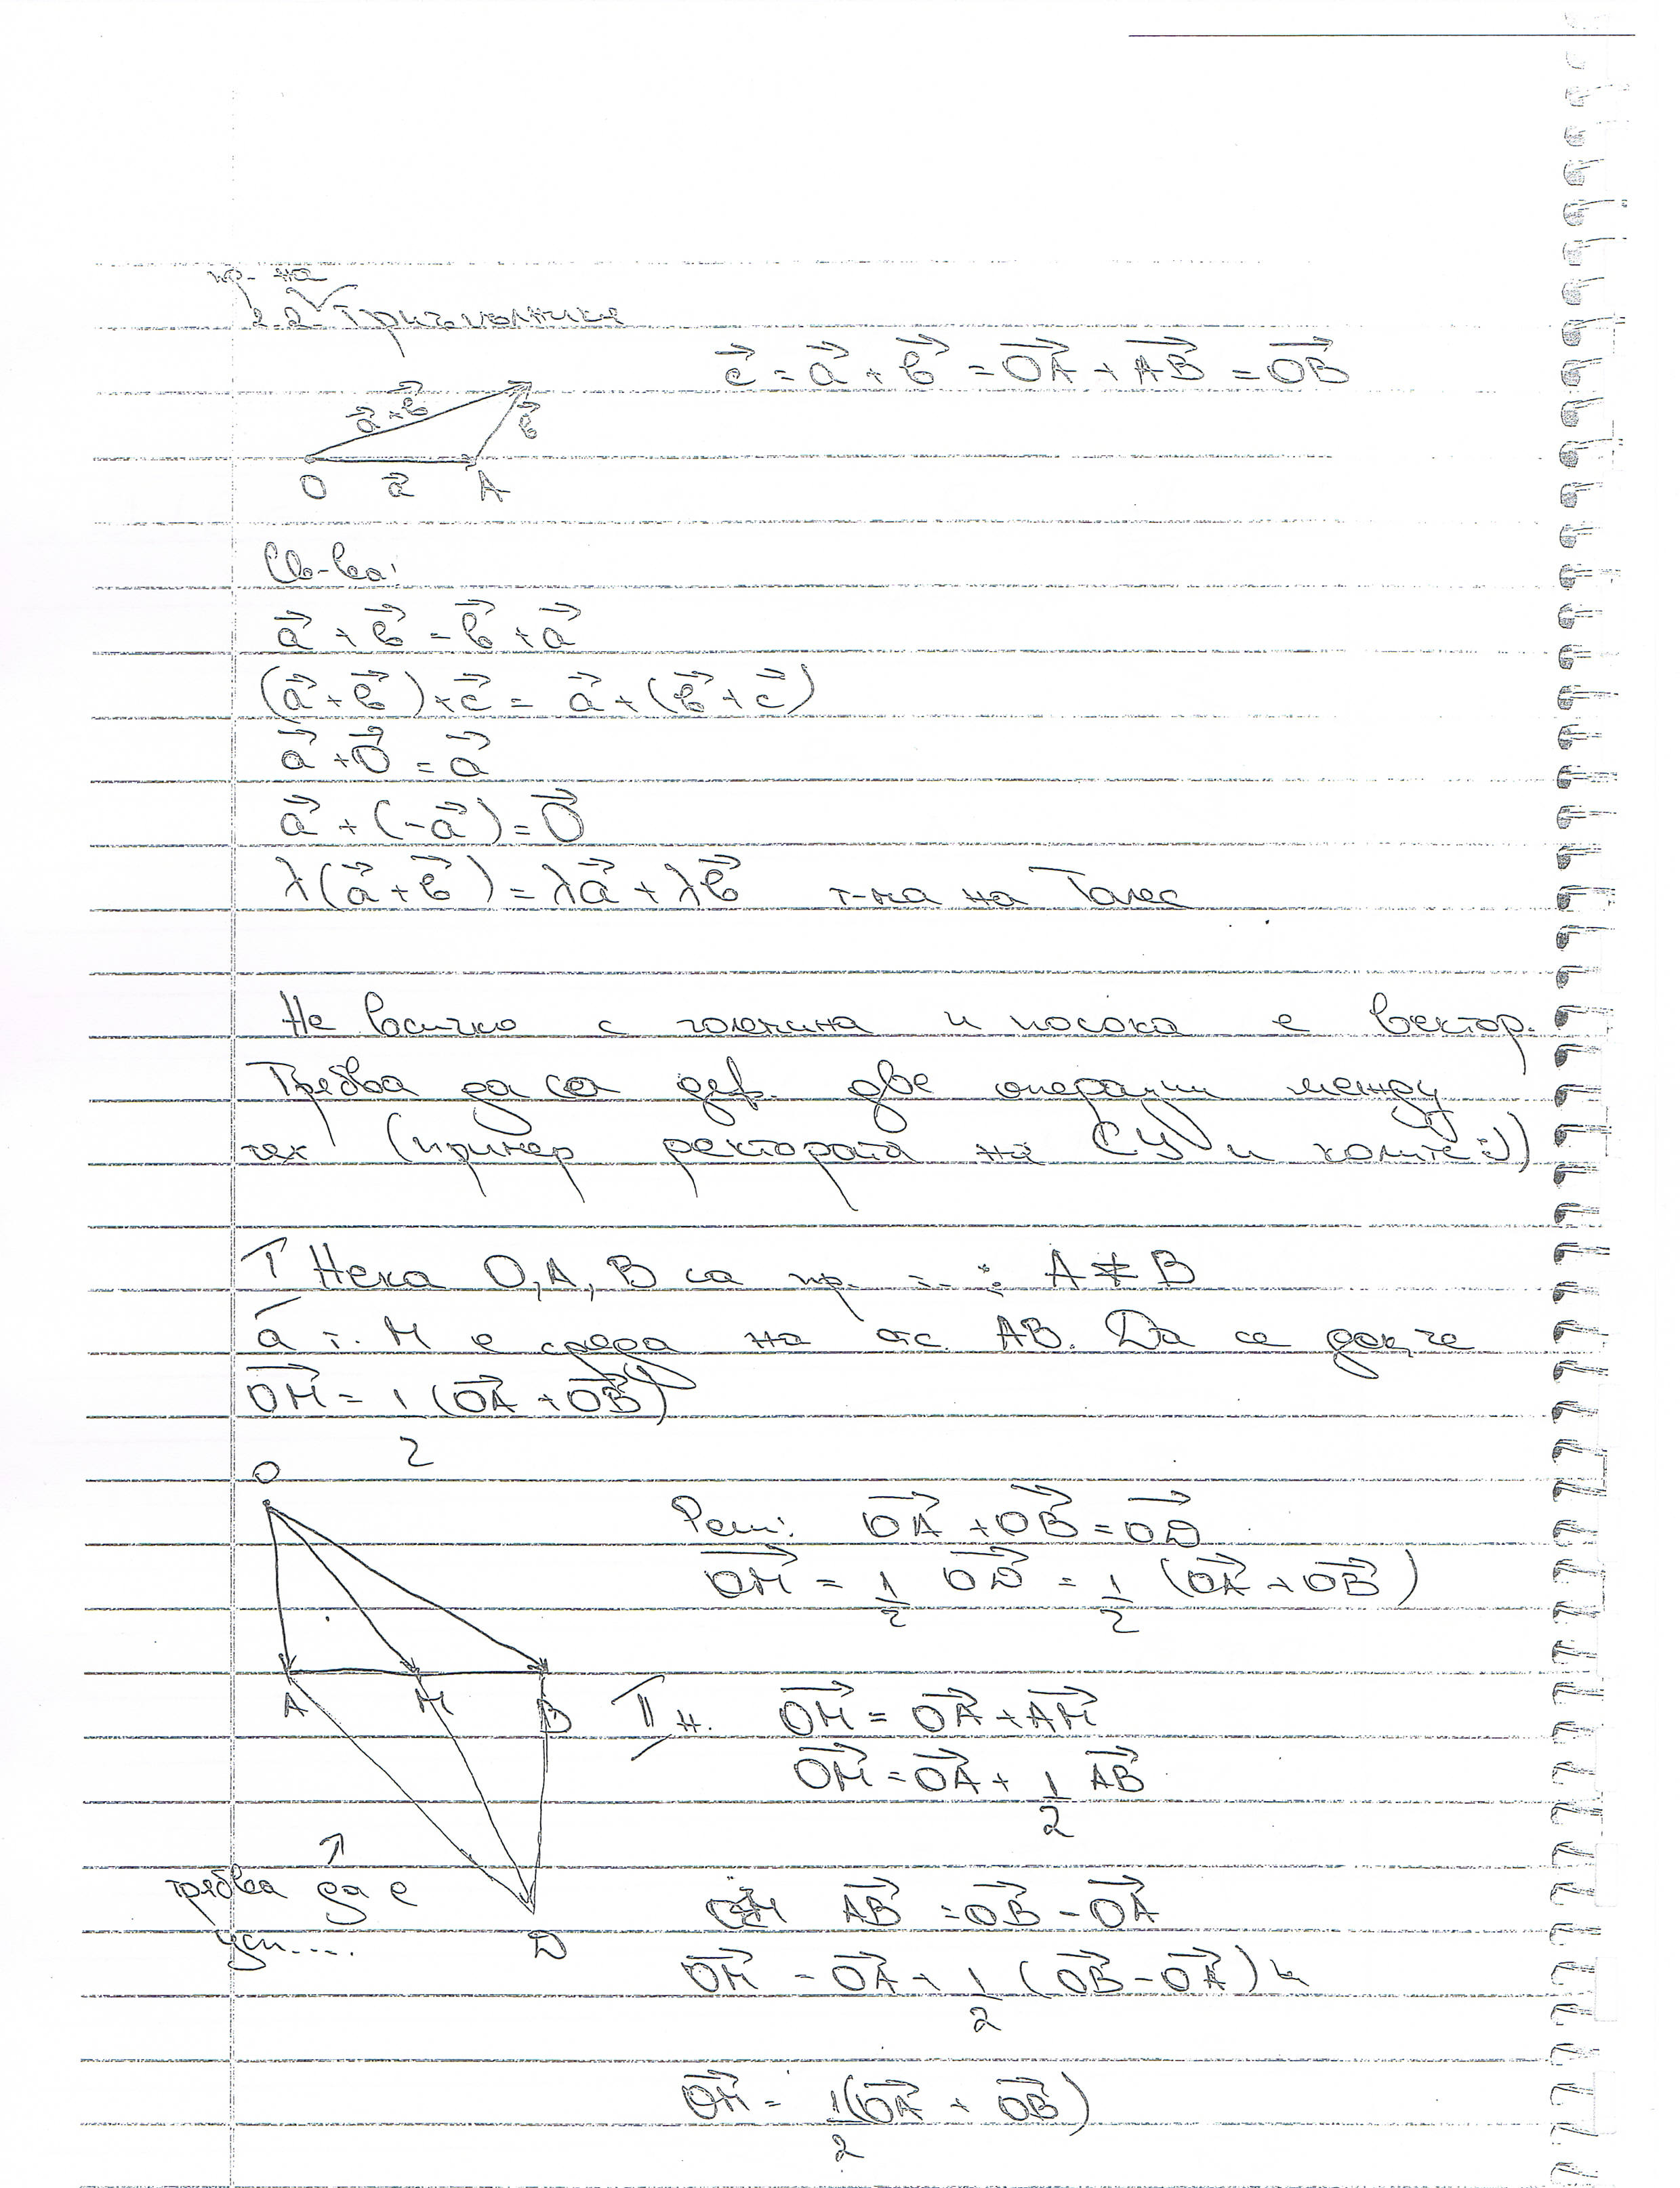 пр. на
2.2. Триъгълника
c⃗ = a⃗ + b⃗ = OA⃗ + AB⃗ = OB⃗
a⃗ + b⃗
b⃗
O a⃗ A
Св-ва:
a⃗ + b⃗ = b⃗ + a⃗
(a⃗ + b⃗) + c⃗ = a⃗ + (b⃗ + c⃗)
a⃗ + O⃗ = a⃗
a⃗ + (-a⃗) = O⃗
λ(a⃗ + b⃗) = λa⃗ + λb⃗ т-ма на Талес
Не всичко с големина и посока е вектор.
Трябва да са деф. две операции между
тях (пример ректората на СУ и колите :))
T Нека O, A, B са пр. A ≠ B
a т. M е среда на отс. AB. Да се док, че
OM⃗ = 1/2 (OA⃗ + OB⃗)
O
Реш: OA⃗ + OB⃗ = OD⃗
OM⃗ = 1/2 OD⃗ = 1/2 (OA⃗ + OB⃗)
A M B
II н. OM⃗ = OA⃗ + AM⃗
OM⃗ = OA⃗ + 1/2 AB⃗
трябва да е
усп....
D
AB⃗ = OB⃗ - OA⃗
OM⃗ = OA⃗ + 1/2 (OB⃗ - OA⃗)
OM⃗ = 1/2 (OA⃗ + OB⃗)